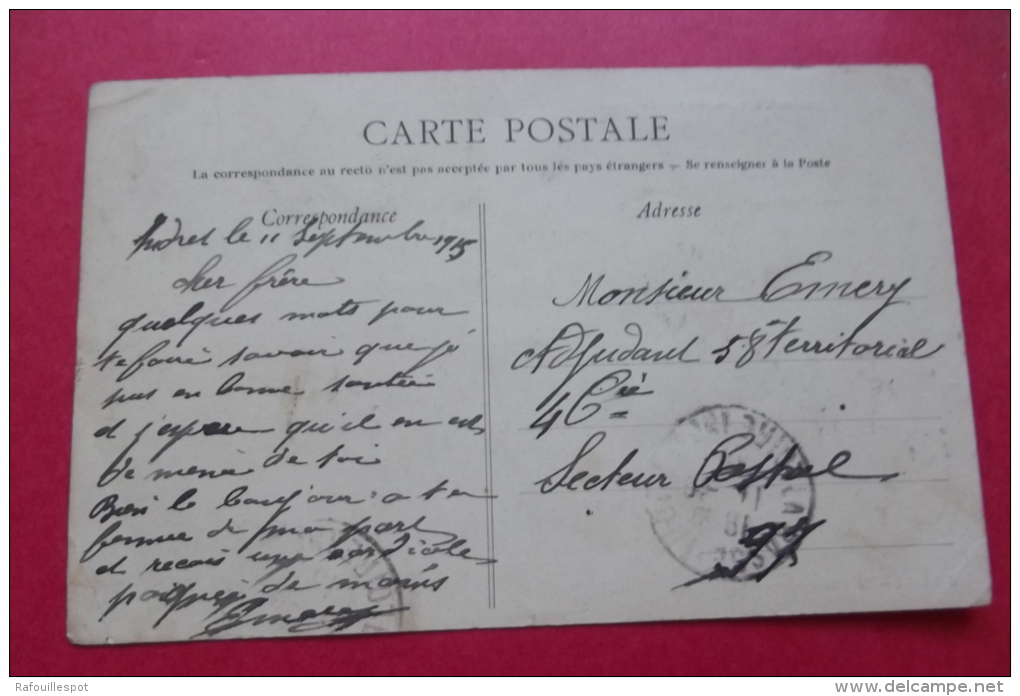 CARTE POSTALE
La correspondance au recto n'est pas acceptée par tous lés pays étrangers — Se renseigner à la Poste
Correspondance
Indret le 11 Septembre 1915
cher frère
quelques mots pour
te faire savoir que je
suis en bonne santée
et j'espere qu'il en est
de meme de toi
Bien le bonjour a ta
femme de ma part
et recois une cordiale
poignée de mains
Emery
Adresse
Monsieur Emery
Adjudant 58e Territorial
4 Cie
Secteur Postal
97
Rafouillespot
©DELCAMPE.NET